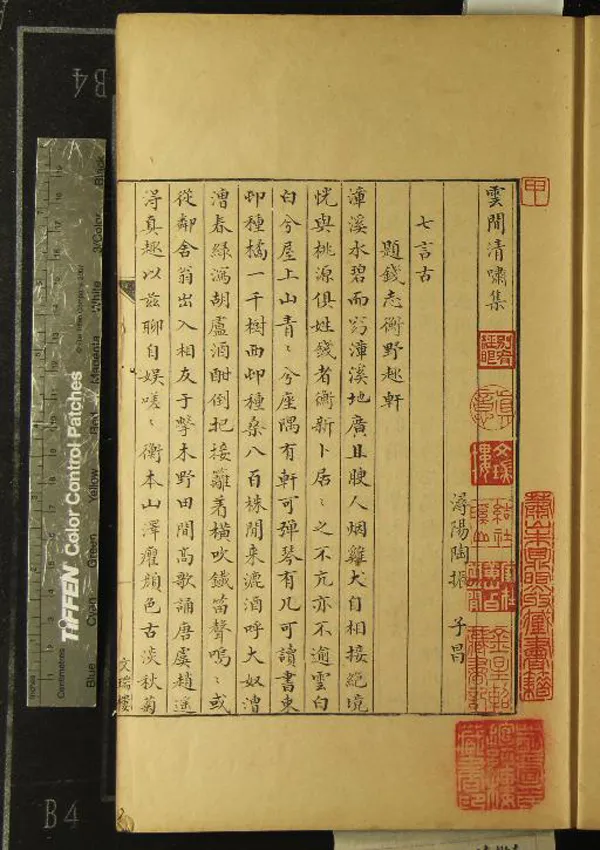 雲間清嘯集
潯陽陶振 子昌
七言古
題錢志衡野趣軒
漳溪水碧而窈漳溪地廣且腴人烟雞犬自相接絕境
恍與桃源俱姓錢者衡新卜居〻之不亢亦不逾雲白
白兮屋上山青〻兮座隅有軒可彈琴有几可讀書東
卬種橘一千樹西卬種桑八百株閒来漉酒呼大奴漕
漕春綠瀉胡盧酒酣倒把接䍦著橫吹鐵笛聲嗚〻或
從鄰舍翁出入相友于擊木野田間高歌誦唐虞趙遥
得真趣以茲聊自娛嗟〻衡本山澤癯顏色古淡秋菊
文瑞樓
甲
文瑞樓
結社溪山
家在黃山
金星軺藏書記
蕭山朱鼎煦收藏書籍
B4
B4
TIFFEN Color Control Patches
Blue
Cyan
Green
Yellow
Red
Magenta
White
3/Color
Black
Inches
Centimetres